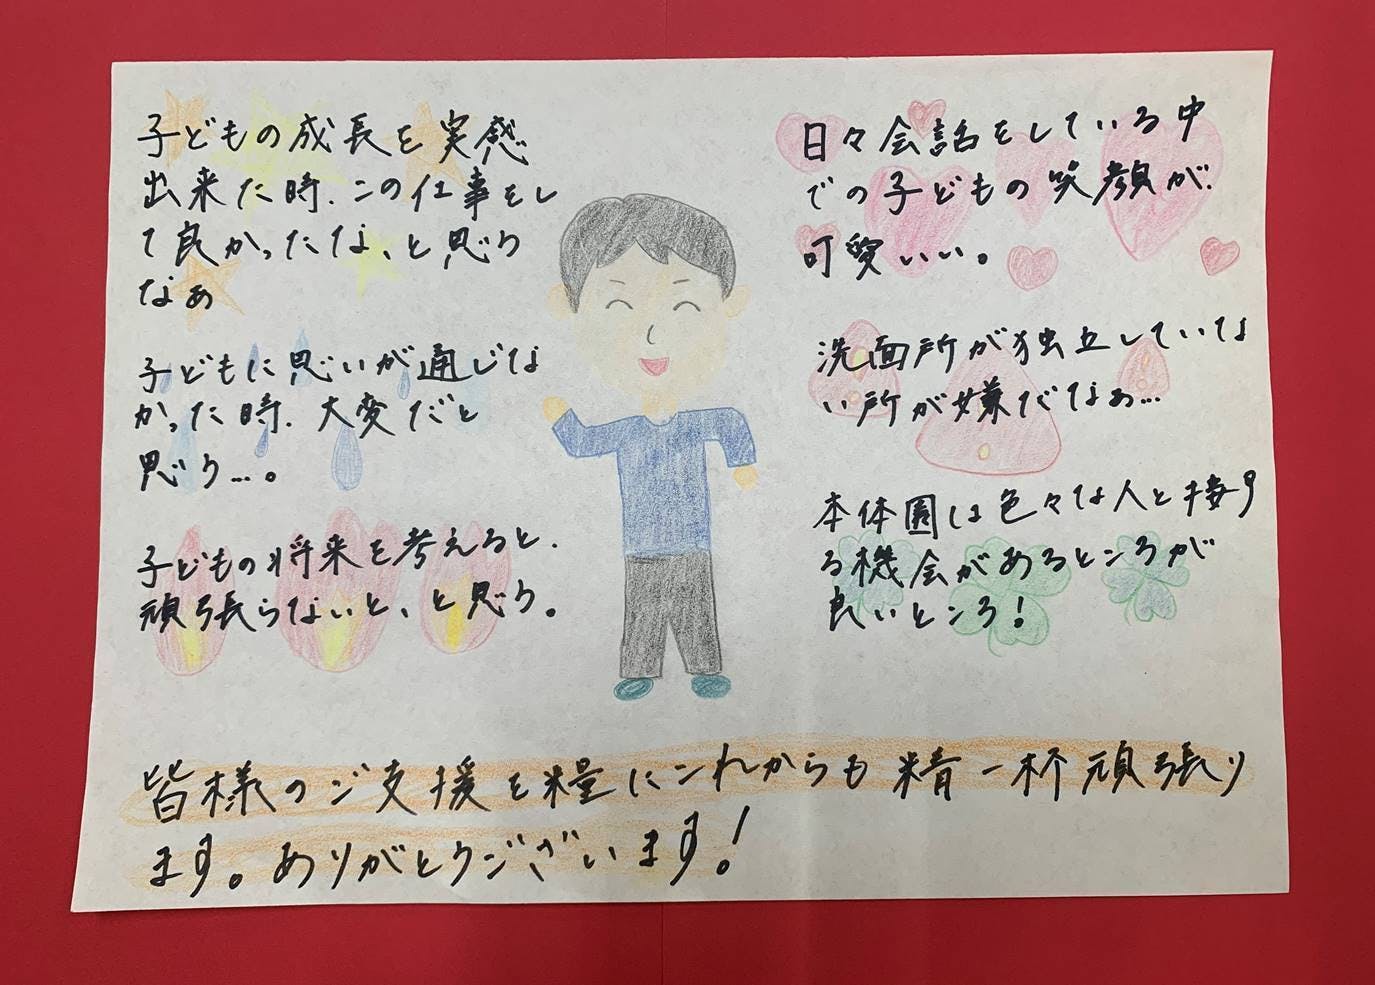 子どもの成長を実感
出来た時、この仕事をし
て良かったな、と思う
なぁ
子どもに思いが通じな
かった時、大変だと
思う…。
子どもの将来を考えると、
頑張らないと、と思う。
日々会話をしている中
での子どもの笑顔が、
可愛いい。
洗面所が独立していな
い所が嫌だなぁ…
本体園は色々な人と接す
る機会があるところが
良いところ！
皆様のご支援を糧にこれからも精一杯頑張り
ます。ありがとうございます！